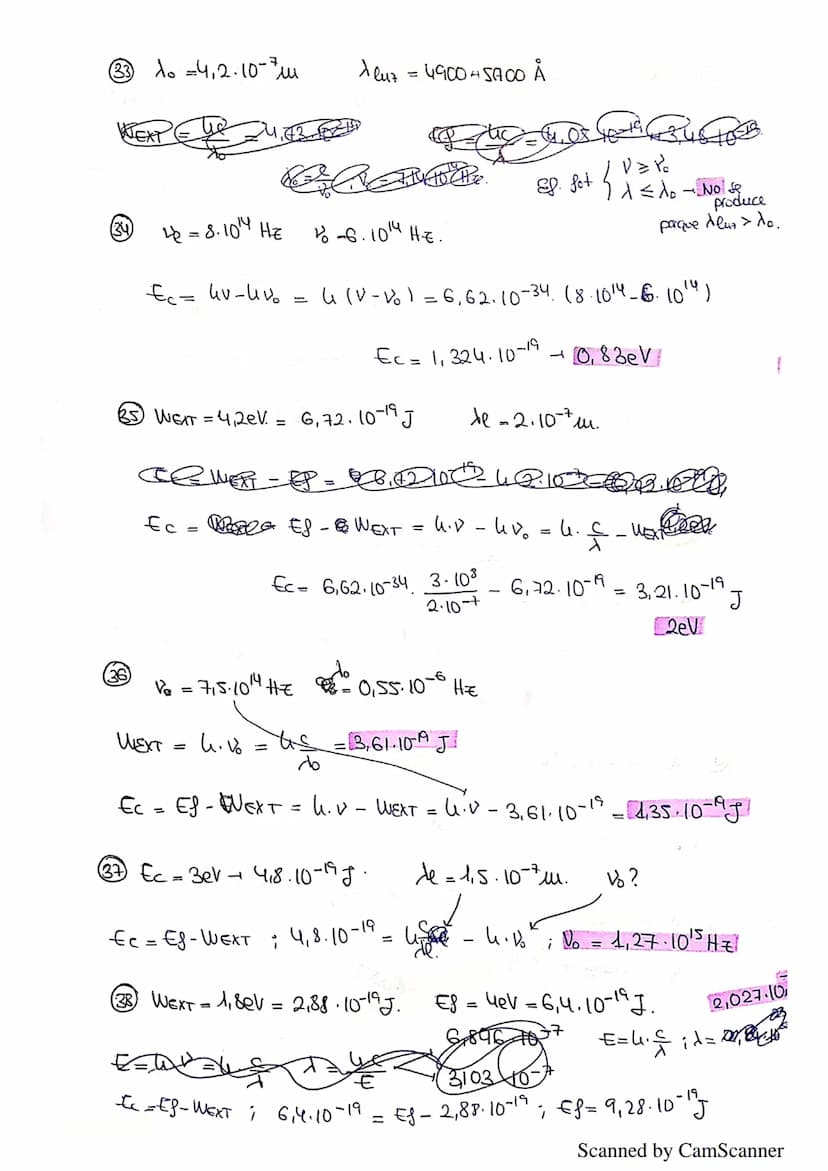 33 λ₀ = 4,2·10⁻⁷ m λluz = 4900 → 5900 Å
Ef. fot { ν ≥ ν₀
λ ≤ λ₀ → No se produce
porque λluz > λ₀.
34 νe = 8·10¹⁴ Hz ν₀ → 6·10¹⁴ Hz.
Ec = hν - hν₀ = h (ν - ν₀) = 6,62·10⁻³⁴· (8·10¹⁴ - 6·10¹⁴)
Ec = 1,324·10⁻¹⁹ → 0,83eV
35 WEXT = 4,2eV. = 6,72·10⁻¹⁹ J λe = 2·10⁻⁷ m.
Ec = Ef - WEXT = h·ν - hν₀ = h·c/λ - WEXT
Ec = 6,62·10⁻³⁴· 3·10⁸/2·10⁻⁷ - 6,72·10⁻¹⁹ = 3,21·10⁻¹⁹ J
2eV
36 νe = 7,5·10¹⁴ Hz λ₀ = 0,55·10⁻⁶ Hz
WEXT = h·ν₀ = h c/λ₀ = 3,61·10⁻¹⁹ J
Ec = Ef - WEXT = h·ν - WEXT = h·ν - 3,61·10⁻¹⁹ = 1,35·10⁻¹⁹ J
37 Ec = 3eV → 4,8·10⁻¹⁹ J. λe = 1,5·10⁻⁷ m. ν₀?
Ec = Ef - WEXT ; 4,8·10⁻¹⁹ = h c/λe - h·ν₀ ; ν₀ = 1,27·10¹⁵ Hz
38 WEXT = 1,8eV = 2,88·10⁻¹⁹ J. Ef = 4eV = 6,4·10⁻¹⁹ J. 2,027·10
E = h·c/λ ; λ =
6,896·10⁻⁷
E = h·ν = h c/λ λ = hc/E
3,103·10⁻⁷
Ec = Ef - WEXT ; 6,4·10⁻¹⁹ = Ef - 2,88·10⁻¹⁹ ; Ef = 9,28·10⁻¹⁹ J
Scanned by CamScanner